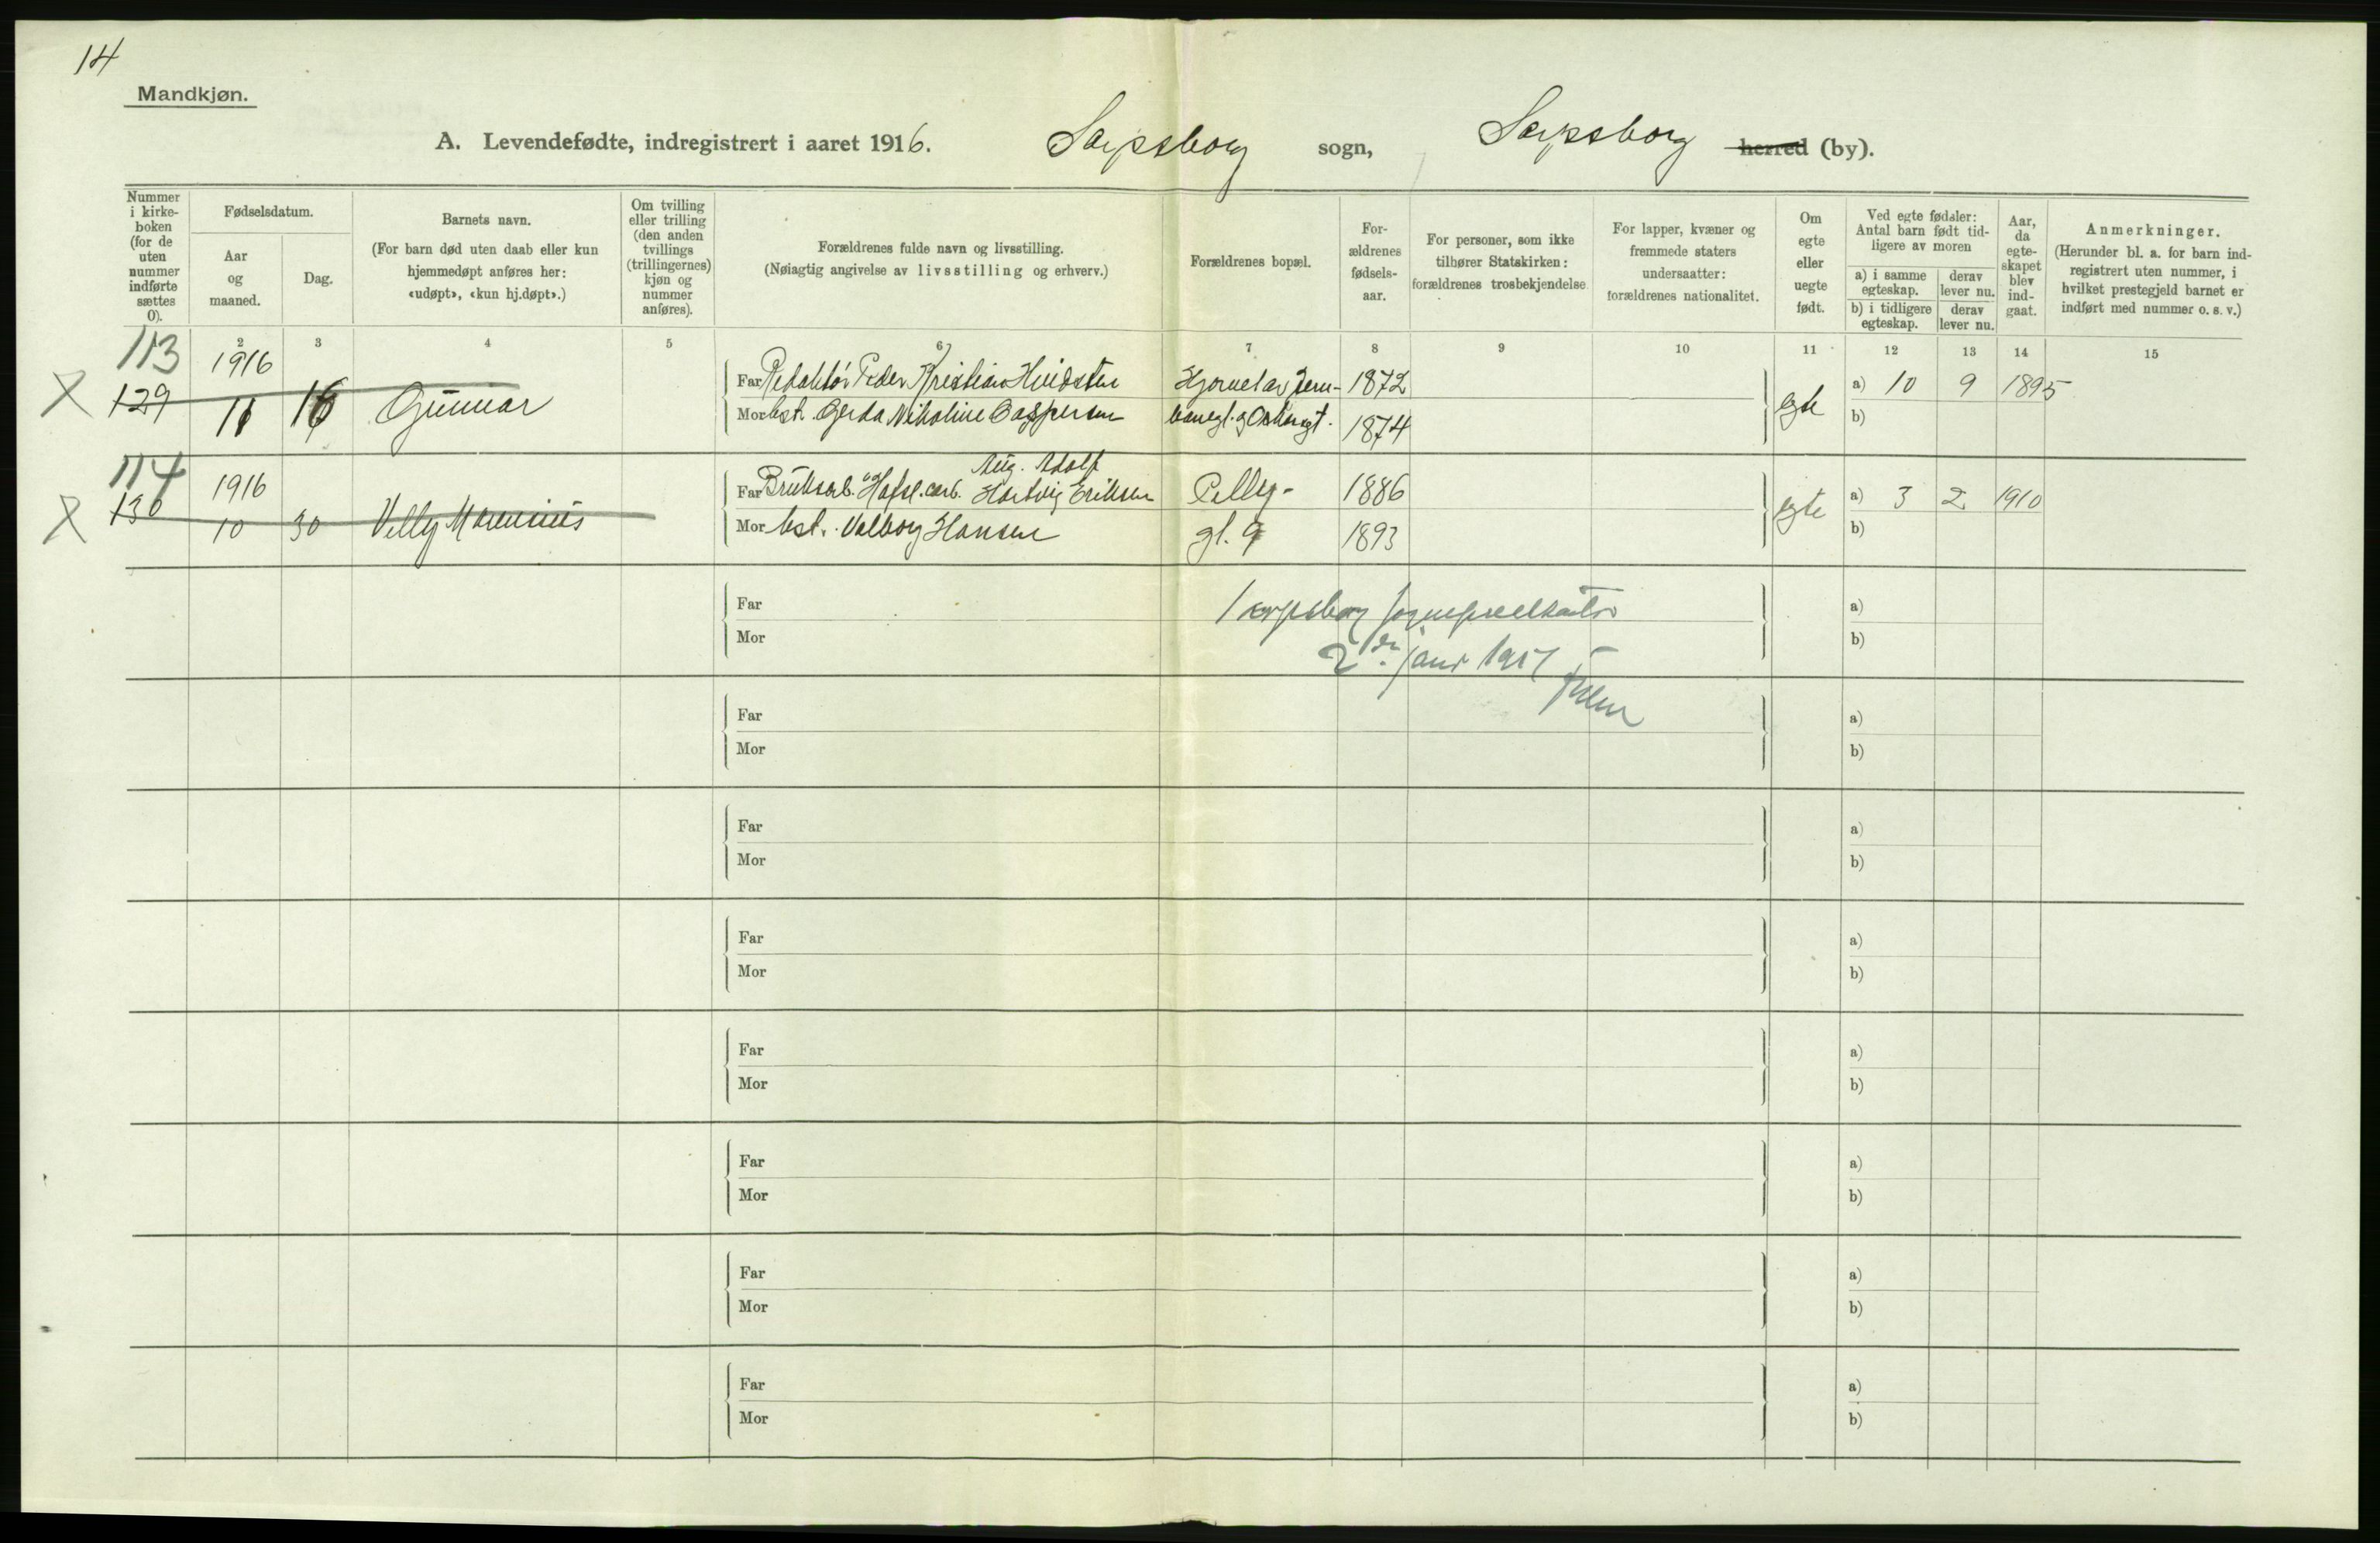 14
Mandkjøn.
A. Levendefødte, indregistrert i aaret 1916. Sarpsborg sogn, Sarpsborg herred (by).
Nummer i kirkeboken (for de uten nummer indførte sættes 0).
Fødselsdatum.
Aar og maaned.
Dag.
Barnets navn.
(For barn død uten daab eller kun hjemmedøpt anføres her: «udøpt», «kun hj.døpt».)
Om tvilling eller trilling (den anden tvillings (trillingernes) kjøn og nummer anføres).
Forældrenes fulde navn og livsstilling.
(Nøiagtig angivelse av livsstilling og erhverv.)
Forældrenes bopæl.
For-ældrenes fødsels-aar.
For personer, som ikke tilhører Statskirken: forældrenes trosbekjendelse
For lapper, kvæner og fremmede staters undersaatter: forældrenes nationalitet.
Om egte eller uegte født.
Ved egte fødsler: Antal barn født tid-ligere av moren
a) i samme egteskap. derav lever nu.
b) i tidligere egteskap. derav lever nu.
Aar, da egte-skapet blev ind-gaat.
Anmerkninger.
(Herunder bl. a. for barn ind-registrert uten nummer, i hvilket prestegjeld barnet er indført med nummer o. s. v.)
2 3 4 5 6 7 8 9 10 11 12 13 14 15
113 1916
Far Redaktör Peder Kristian Hvidsten Hjørnet av Jern- 1872 a) 10 9 1895
X 129 11 16 Gunnar egte
Mor hst. Gerda Nikoline Caspersen banegt. g Oskarsgt. 1874 b)
114 1916 Aug. Adolf
Far Bruksarb. Hafsl. carb. Hartvig Eriksen Pellyg- 1886 a) 3 2 1910
X 130 10 30 Villy Marenius egte
Mor hst. Valborg Hansen gt. 9 1893 b)
Far a)
Sarpsborg
Mor b)
2den janr 1917
Far a)
Mor b)
Far a)
Mor b)
Far a)
Mor b)
Far a)
Mor b)
Far a)
Mor b)
Far a)
Mor b)
Far a)
Mor b)